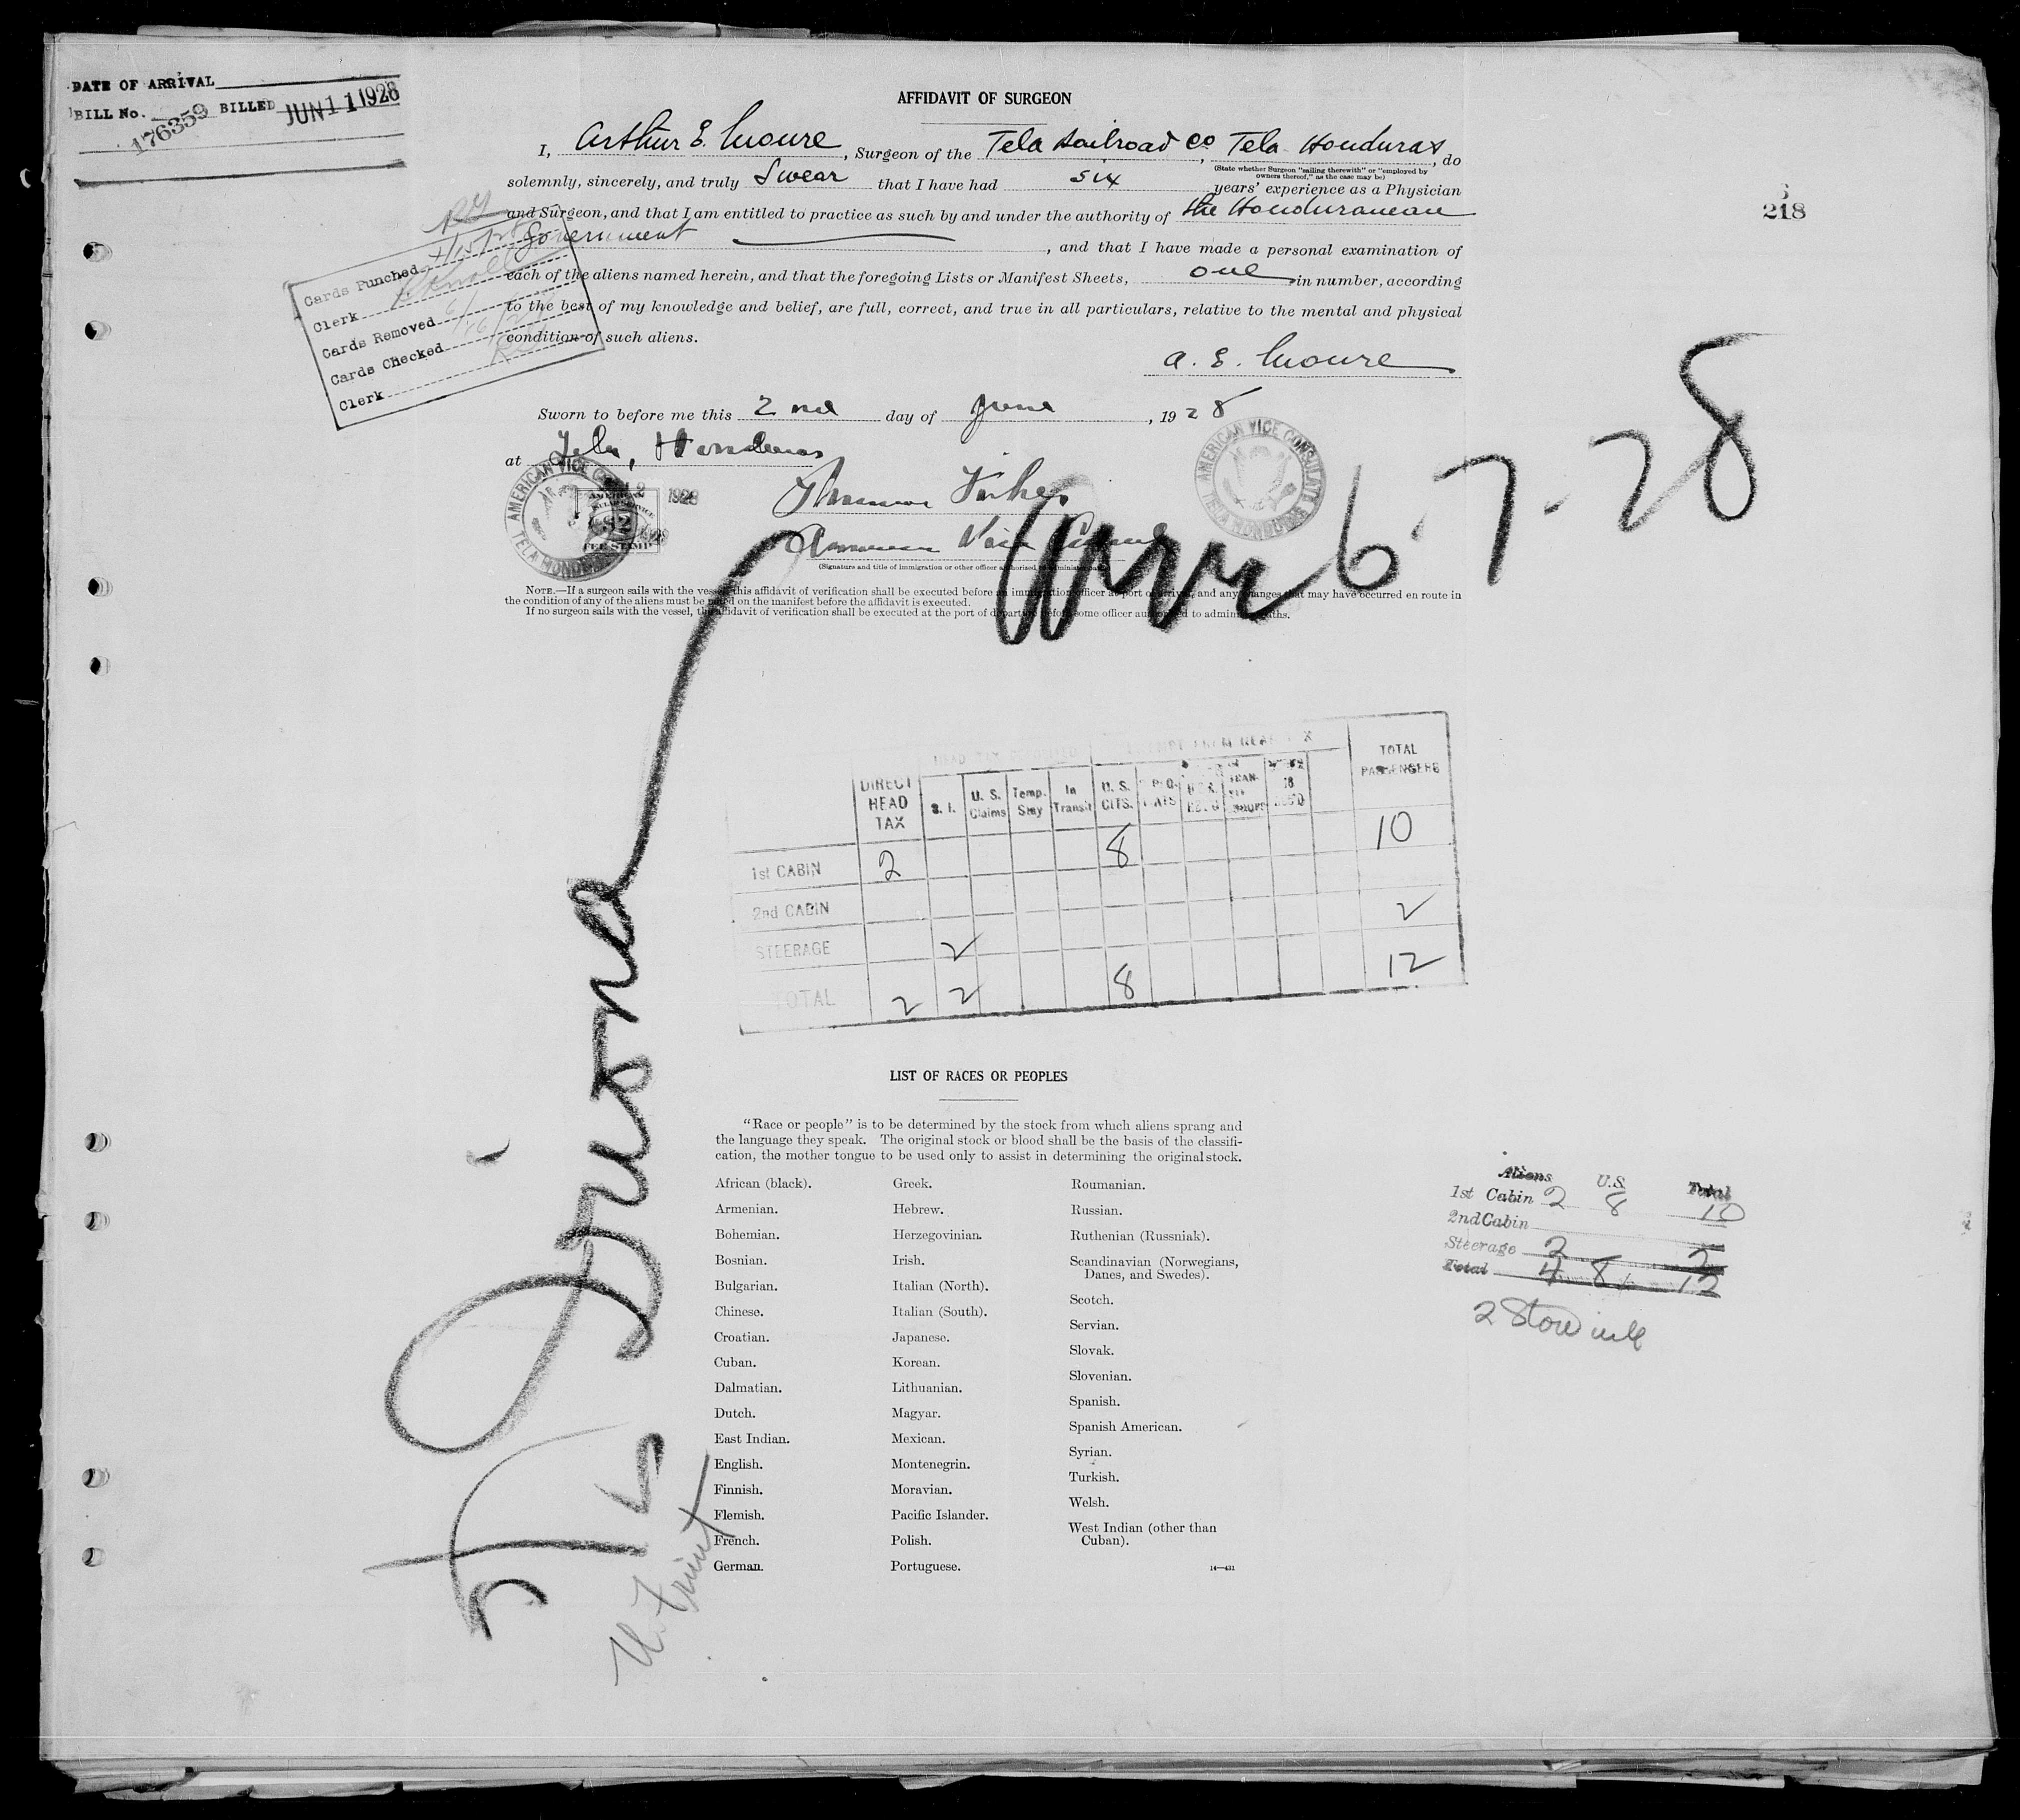 DATE OF ARRIVAL
BILL No. 176359 BILLED JUN 11 1928
AFFIDAVIT OF SURGEON
I, Arthur E. Moure, Surgeon of the Tela Railroad Co, Tela Honduras, do
(State whether Surgeon "sailing therewith" or "employed by
owners thereof," as the case may be)
solemnly, sincerely, and truly Swear that I have had six years' experience as a Physician
and Surgeon, and that I am entitled to practice as such by and under the authority of the Honduranean
Government, and that I have made a personal examination of
each of the aliens named herein, and that the foregoing Lists or Manifest Sheets, one in number, according
to the best of my knowledge and belief, are full, correct, and true in all particulars, relative to the mental and physical
condition of such aliens.
A. E. Moure
218
Cards Punched
Clerk
Cards Removed
Cards Checked
Clerk
Sworn to before me this 2nd day of June, 1928
at Tela, Honduras
AMERICAN VICE CONSULATE
TELA HONDURAS
AMERICAN
FEE STAMP
1928
AMERICAN VICE CONSULATE
TELA HONDURAS
American Vice Consul
(Signature and title of immigration or other officer authorized to administer oaths)
Arr 6-7-28
NOTE.—If a surgeon sails with the vessel, this affidavit of verification shall be executed before an immigration officer at port of arrival, and any changes that may have occurred en route in
the condition of any of the aliens must be noted on the manifest before the affidavit is executed.
If no surgeon sails with the vessel, the affidavit of verification shall be executed at the port of departure before some officer authorized to administer oaths.
TOTAL PASSENGERS
DIRECT HEAD TAX S. I. U. S. Claims Temp. Stay In Transit U. S. CITS.
1st CABIN 2 8 10
2nd CABIN
STEERAGE 2 2
TOTAL 2 2 8 12
LIST OF RACES OR PEOPLES
"Race or people" is to be determined by the stock from which aliens sprang and
the language they speak. The original stock or blood shall be the basis of the classifi-
cation, the mother tongue to be used only to assist in determining the original stock.
African (black).
Armenian.
Bohemian.
Bosnian.
Bulgarian.
Chinese.
Croatian.
Cuban.
Dalmatian.
Dutch.
East Indian.
English.
Finnish.
Flemish.
French.
German.
Greek.
Hebrew.
Herzegovinian.
Irish.
Italian (North).
Italian (South).
Japanese.
Korean.
Lithuanian.
Magyar.
Mexican.
Montenegrin.
Moravian.
Pacific Islander.
Polish.
Portuguese.
Roumanian.
Russian.
Ruthenian (Russniak).
Scandinavian (Norwegians,
Danes, and Swedes).
Scotch.
Servian.
Slovak.
Slovenian.
Spanish.
Spanish American.
Syrian.
Turkish.
Welsh.
West Indian (other than
Cuban).
14—431
Aliens U.S. Total
1st Cabin 2 8 10
2nd Cabin
Steerage 2 2
Total 4 8 12